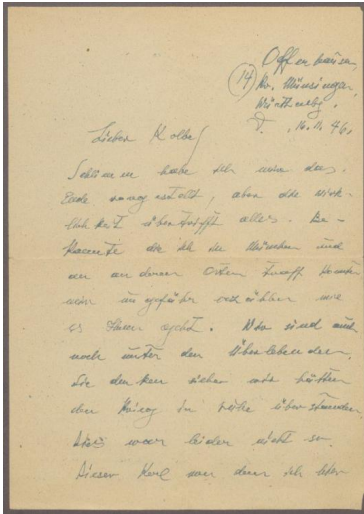 Offenhausen,
(14) Kr. Münsingen,
Württembg.
d. 16.11.46.
Lieber Kolbe!
Schlimm habe ich mir das
Ende vorgestellt, aber die Wirk-
lichkeit übertrifft alles. Be-
kannte die ich in München und
an anderen Orten traff konnten
mir ungefähr erzählen wie
es Ihnen geht. Wir sind auch
noch unter den Überlebenden,
Sie denken sicher wir hätten
den Krieg in Ruhe überstanden
war leider nicht so.
Dieser Kerl von dem ich